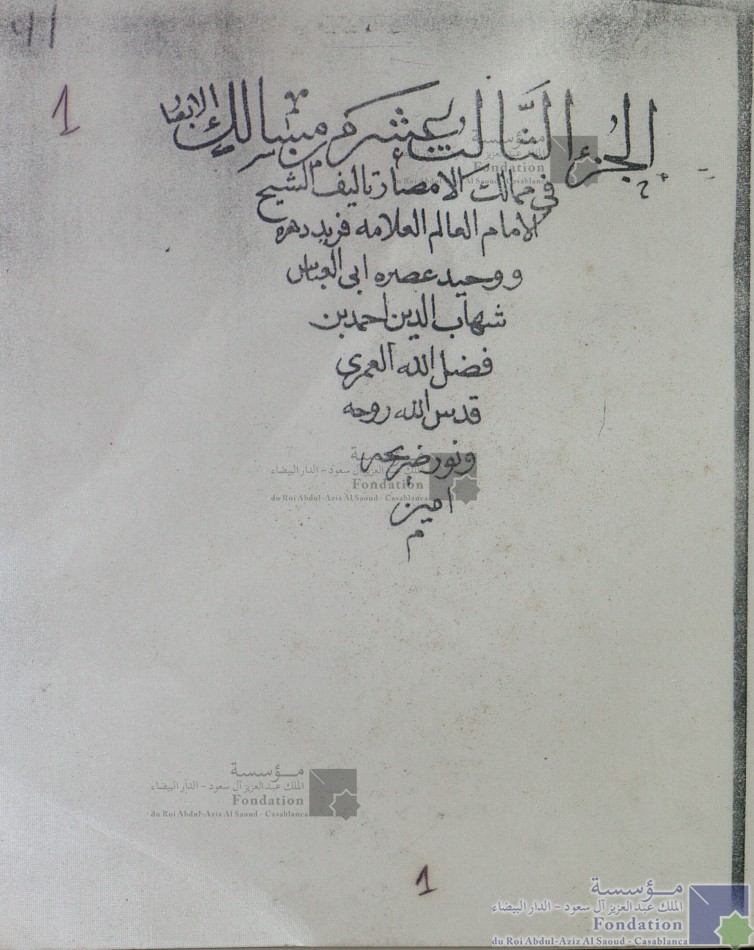 41
1
الجزء الثالث عشر من مسالك الابصار
في ممالك الامصار تاليف الشيخ
الامام العالم العلامه فريد دهره
ووحيد عصره ابي العباس
شهاب الدين احمد بن
فضل الله العمري
قدس الله روحه
ونور ضريحه
امين
م
مؤسسة
الملك عبد العزيز آل سعود - الدار البيضاء
Fondation
du Roi Abdul-Aziz Al Saoud - Casablanca
مؤسسة
الملك عبد العزيز آل سعود - الدار البيضاء
Fondation
du Roi Abdul-Aziz Al Saoud - Casablanca
مؤسسة
الملك عبد العزيز آل سعود - الدار البيضاء
Fondation
du Roi Abdul-Aziz Al Saoud - Casablanca
1
مؤسسة
الملك عبد العزيز آل سعود - الدار البيضاء
Fondation
du Roi Abdul-Aziz Al Saoud - Casablanca